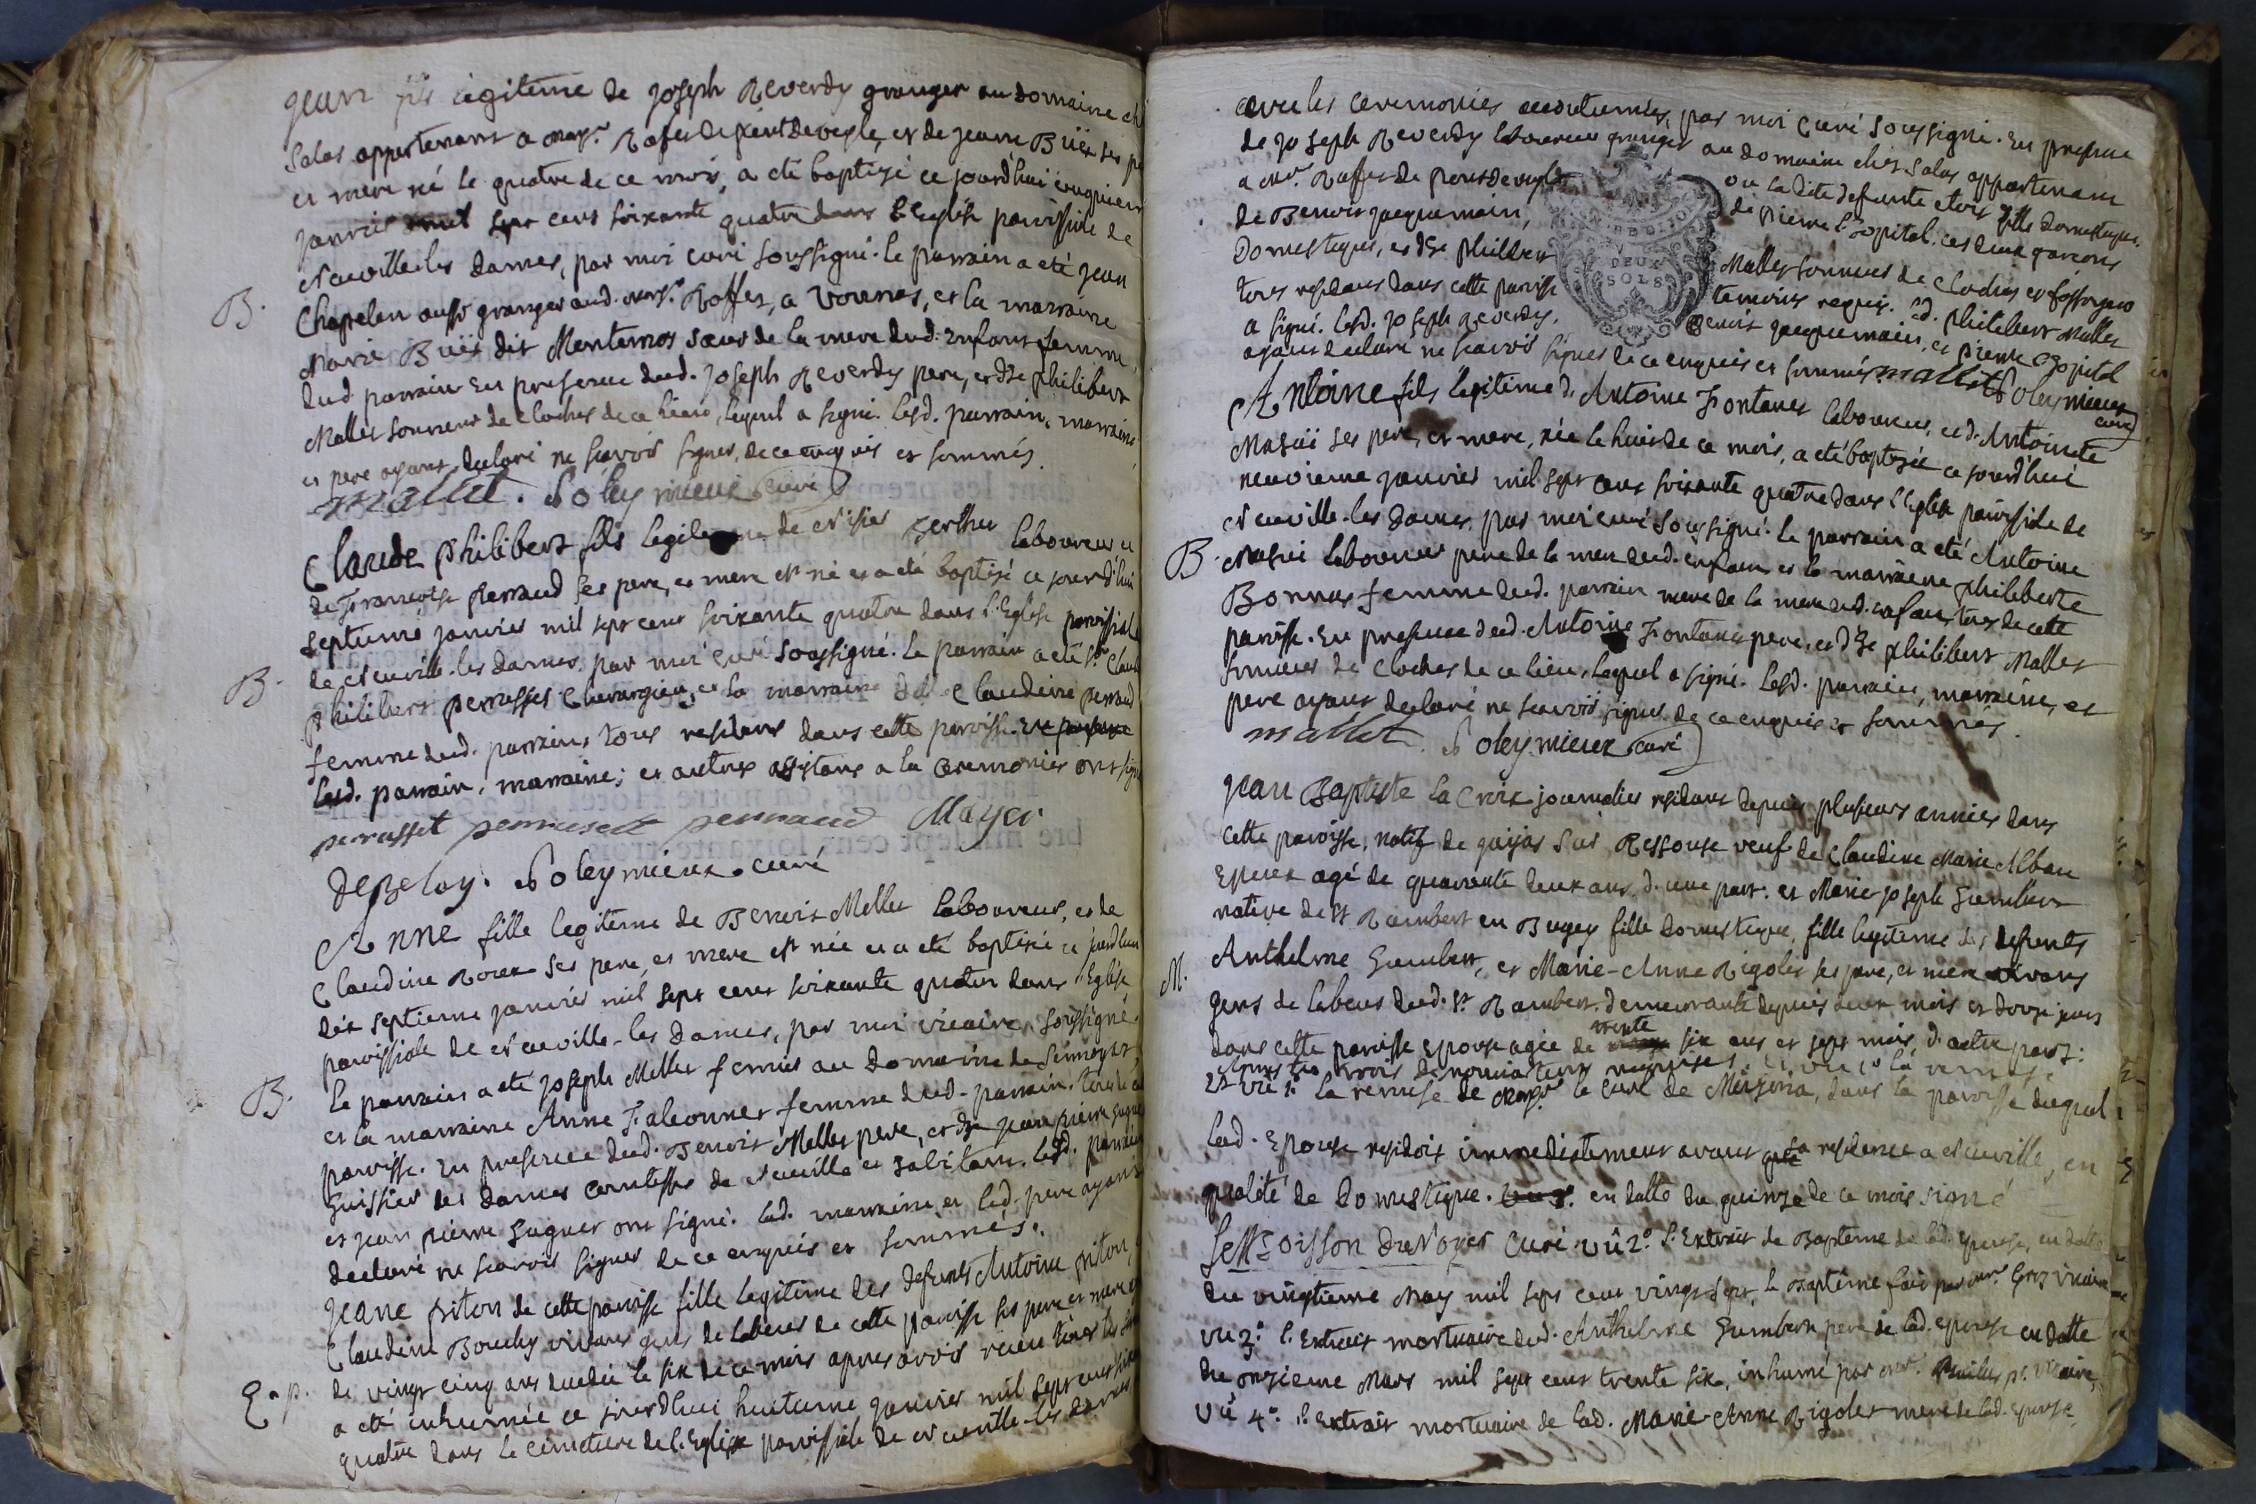 Jean fils legitime de Joseph Reverdy granger au domaine ch
Salas appartenant a Monsr. Rafet de pont de veyle, et de jeane Buïs ses pe
et mere né le quatre de ce mois, a eté baptizé ce jourd'hui cinquiem
janvier mil sept cens soixante quatre dans l'Eglise paroissiale de
Neuville les dames, par moi curé soussigné. le parrain a eté jean
B.
Chapelan aussi granger aud. monsr. Roffet, a Vonnas, et la marraine
Marie Buïs dit Monternos soeur de la mere dud. Enfant femme
dud parrain En presence dud. Joseph Reverdy pere, et de philibert
Mallet sonneur de cloches de ce lieu, lequel a signé. lesd. parrain, marraine,
et pere ayant declaré ne sçavoir signer, de ce enquis et sommés.
mallet. Poleymieux curé
Claude Philibert fils legitime de Nisier Berthu laboureur et
de Françoise Perraud ses pere, et mere est né et a eté baptisé ce jourd'hui
septieme janvier mil sept cens soixante quatre dans l'Eglise paroissiale
de Neuville-les dames, par moi curé soussigné. Le parrain a eté Sr. Claude
B.
Philibert perrusset Chirurgien, et la marraine Claudine perraud
femme dud. parrain, tous residens dans cette paroisse. En presence
lesd. parrain, marraine, et autres assistans a la ceremonies ont signé
perusset perrusset perraud Mayer
deBeloy. Poleymieux. curé
Anne fille legitime de Benoit Mellet laboureur, et de
Claudine Roux ses pere, et mere est née et a eté baptisée ce jourd'hui
dix septieme janvier mil sept cens soixante quatre dans l'Eglise
paroissiale de Neuville-les dames, par moi vicaire soussigné.
B.
Le parrain a eté joseph Mellet fermier au domaine de
et la marraine Anne Falconnet femme dud. parrain. tous de
paroisse. En presence dud. Benoit Mellet pere, et de jean pierre
huissier des dames comtesses de Neuville et habitant. lesd. parrain
et jean pierre huguet ont signé. lad. marraine et led. pere ayant
declaré ne sçavoir signer de ce enquis et sommés.
Jeane piton de cette paroisse fille legitime des defunts Antoine piton,
Claudine Bouchy vivans gens de labeur de cette paroisse ses pere et mere
de vingt cinq ans decedée le six de ce mois apres avoir reçu tous les
E.p.
a eté inhumée ce jourd'hui huitieme janvier mil sept cens
quatre dans le cimetiere de l'Eglise paroissiale de Neuville-les dames
avec les ceremonies accoutumées, par moi curé soussigné. En presence
de joseph Reverdy laboureur granger au domaine chés Salas appartenant
a Mr. Raffet de pont de veyle ou la dite defunte etoit fille domestique,
de Benoit jacquemain, de Pierre l'hopital, ces deux garçons
domestiques, et de philibert Mallet sonneur de cloches et fossoyeur
tous residans dans cette paroisse temoins requis. led. philibert Mallet
a signé. lesd. joseph Reverdy, Benoit jacquemain, et pierre hopital
ayant declaré ne sçavoir signer de ce enquis et sommés. mallet Poleymieux
curé
DEUX
SOLS
Antoine fils legitime d'Antoine Fontanet laboureur, et d'Antoinete
Masuï ses pere, et mere, née le huit de ce mois, a eté baptizée ce jourd'hui
neuvieme janvier mil sept cens soixante quatre dans l'Eglise paroissiale de
Neuville-les dames, par moi curé soussigné. le parrain a eté Antoine
B.
Masui laboureur pere de la mere dud. enfant, et la marraine philiberte
Bonnet femme dud. parrain mere de la mere dud. enfant, tous de cette
paroisse. En presence dud. Antoine Fontanet pere, et de philibert Mallet
sonneur de cloches de ce lieu, lequel a signé. lesd. parrain, marraine, et
pere ayant declaré ne sçavoir signer, de ce enquis et sommés.
mallet. Poleymieux curé
Jean Baptiste la Croix journalier residant depuis plusieurs années dans
cette paroisse, natif de Sur Ressouse veuf de Claudine Marie Alban
Epoux agé de quarante deux ans d'une part: et Marie Joseph humbert
native de St Rambert en Bugey fille domestique, fille legitime des defunts
Anthelme humbert, et Marie-Anne Rigolet ses pere, et mere vivans
M.
gens de labeur dud. St. Rambert. demeurante depuis deux mois et douze jours
dans cette paroisse Epouse agée de trente six ans et sept mois d'autre part:
Et vû 1°. la remise de Monsr. le curé de Misseria, dans la paroisse duquel
lad. Epouse residoit immediatement avant sa residence a Neuville, en
qualité de domestique. en datte du quinze de ce mois signé
curé. vû 2°. l'Extrait de Bapteme de lad. Epouse, en datte
du vingtieme May mil sept cens vingt sept, le Baptême fait par Mr. vicaire
vû 3°. l'Extrait mortuaire dud. Anthelme humbert pere de lad. epouse en datte
du onzieme Mars mil sept cens trente six, inhumé par Mr. pr. vicaire,
vû 4°. l'Extrait mortuaire de lad. Marie-Anne Rigolet mere de lad. Epouse